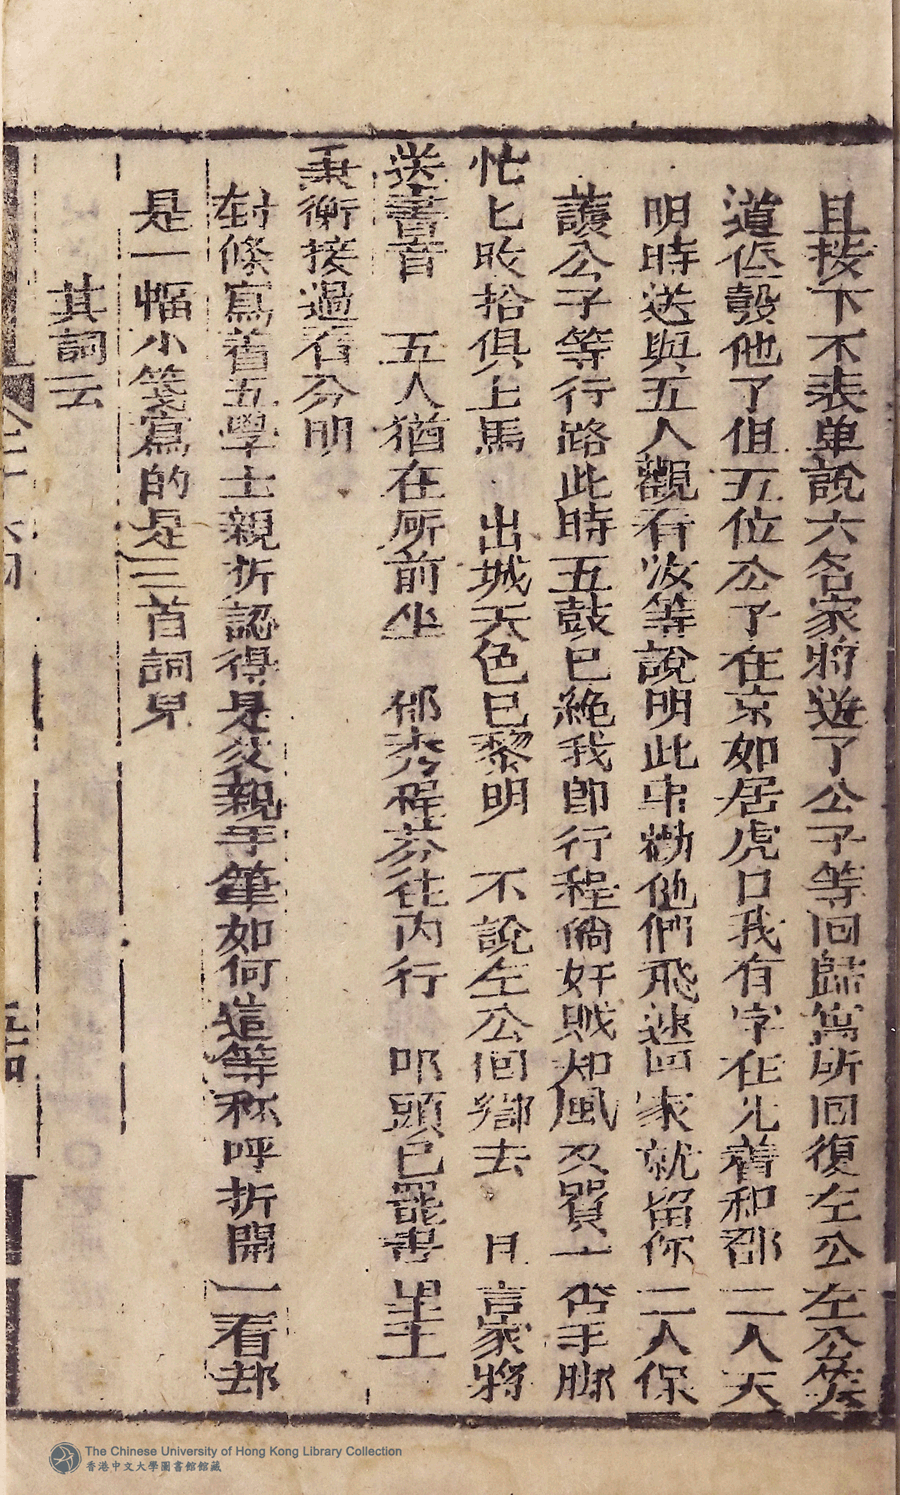 且接下不表单說六名家將送了公子等回歸寓所回復左公左公笑
道低彀他了但五位公子在京如居虎口我有字在此着和邵二人天
明時送與五人觀看汝等說明此事勸他們飛速回家就留你二人保
護公子等行路此時五鼓已絶我即行程倘奸賊知風反賀一沓手脚
忙匕收拾俱上馬 出城天色已黎明 不說左公回鄉去 且言家將
送書音 五人猶在所前坐 邵秀程芬往内行 叩頭已罷書呈上
秉衡接過看分明
封條寫着五學士親折認得是父親手筆如何這等称呼折開一看却
是一幅小箋寫的是三首詞兒
其詞云
五十四
The Chinese University of Hong Kong Library Collection
香港中文大學圖書館館藏